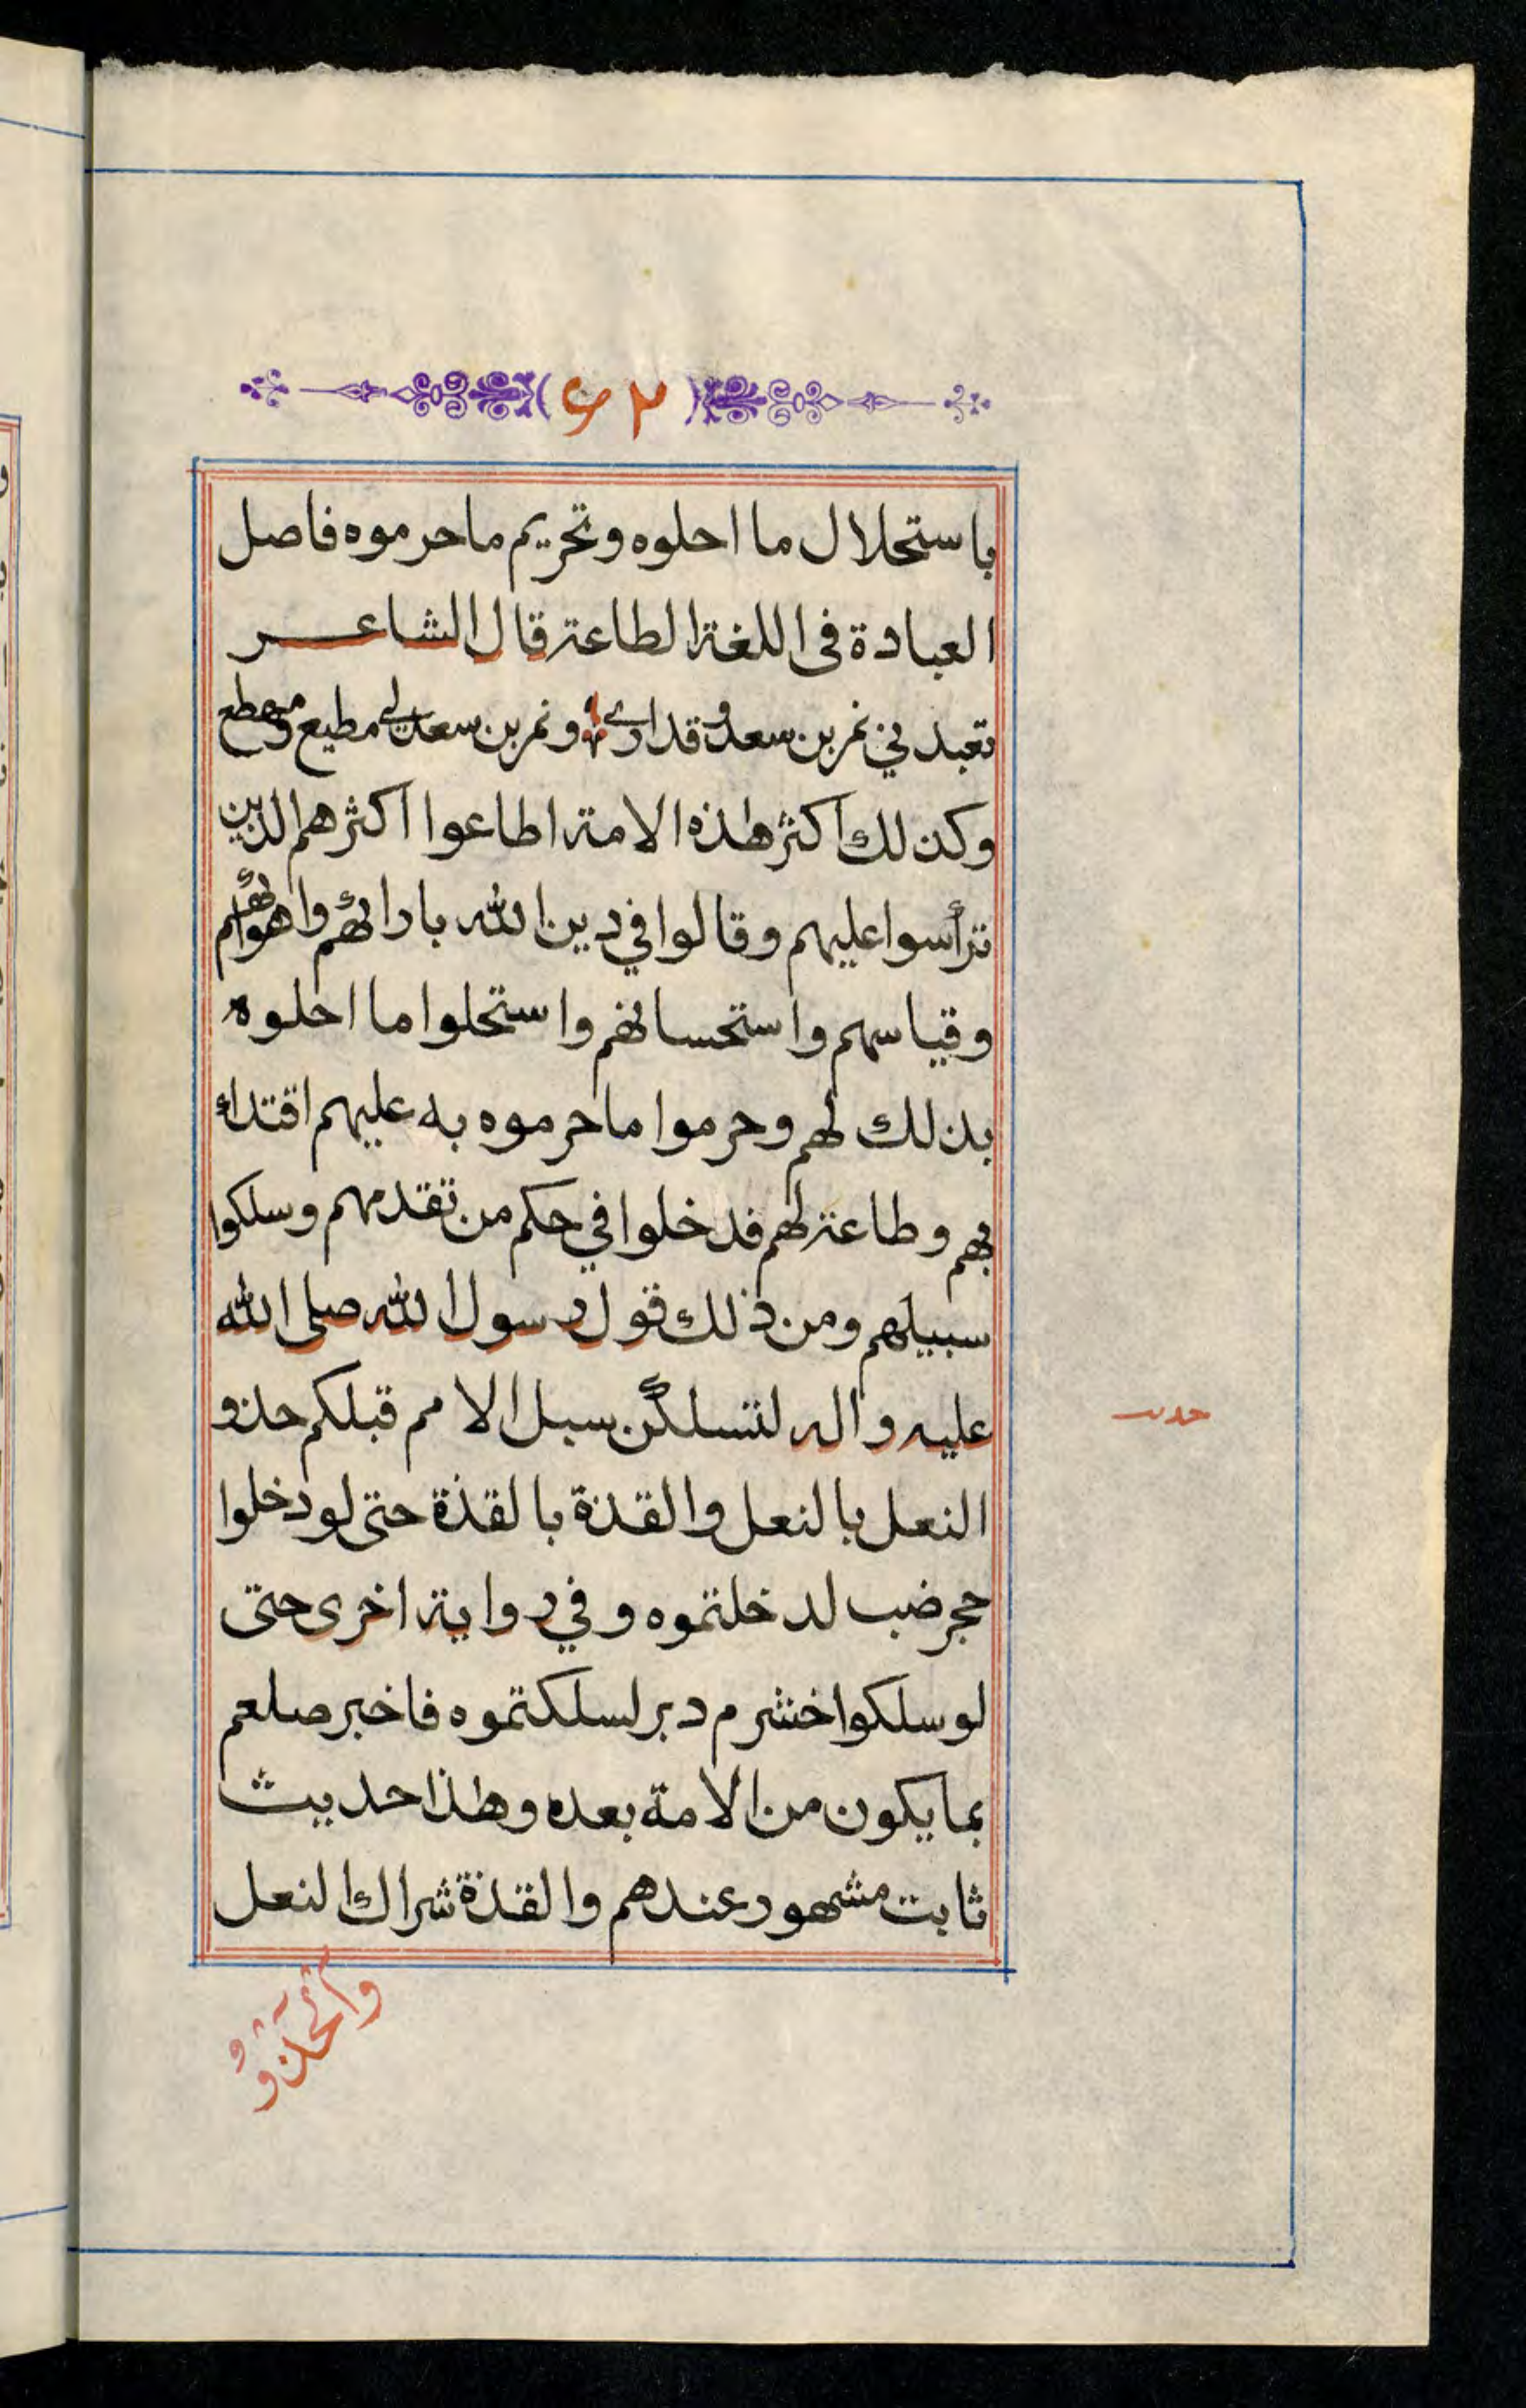 ٦٢
باستحلال ما احلوه وتحريم ما حرموه فاصل
العبادة فى اللغة الطاعة قال الشاعر
تعبدني نمر بن سعد وقد ارى ونمر بن سعد لي مطيع ومهطع
وكذلك اكثر هذه الامة اطاعوا اكثرهم الذين
ترأسوا عليهم وقالوا في دين الله بارائهم واهوائهم
وقياسهم واستحسانهم واستحلوا ما احلوه
بذلك لهم وحرموا ما حرموه به عليهم اقتداء
بهم وطاعة لهم فدخلوا في حكم من تقدمهم وسلكوا
سبيلهم ومن ذلك قول رسول الله صلى الله
عليه واله لتسلكن سبل الامم قبلكم حذو
النعل بالنعل والقذة بالقذة حتى لو دخلوا
حجر ضب لدخلتموه وفي رواية اخرى حتى
لو سلكوا خشرم دبر لسلكتموه فاخبر صلعم
بما يكون من الامة بعده وهذا حديث
ثابت مشهور عندهم والقذة شراك النعل
حديث
والحذو